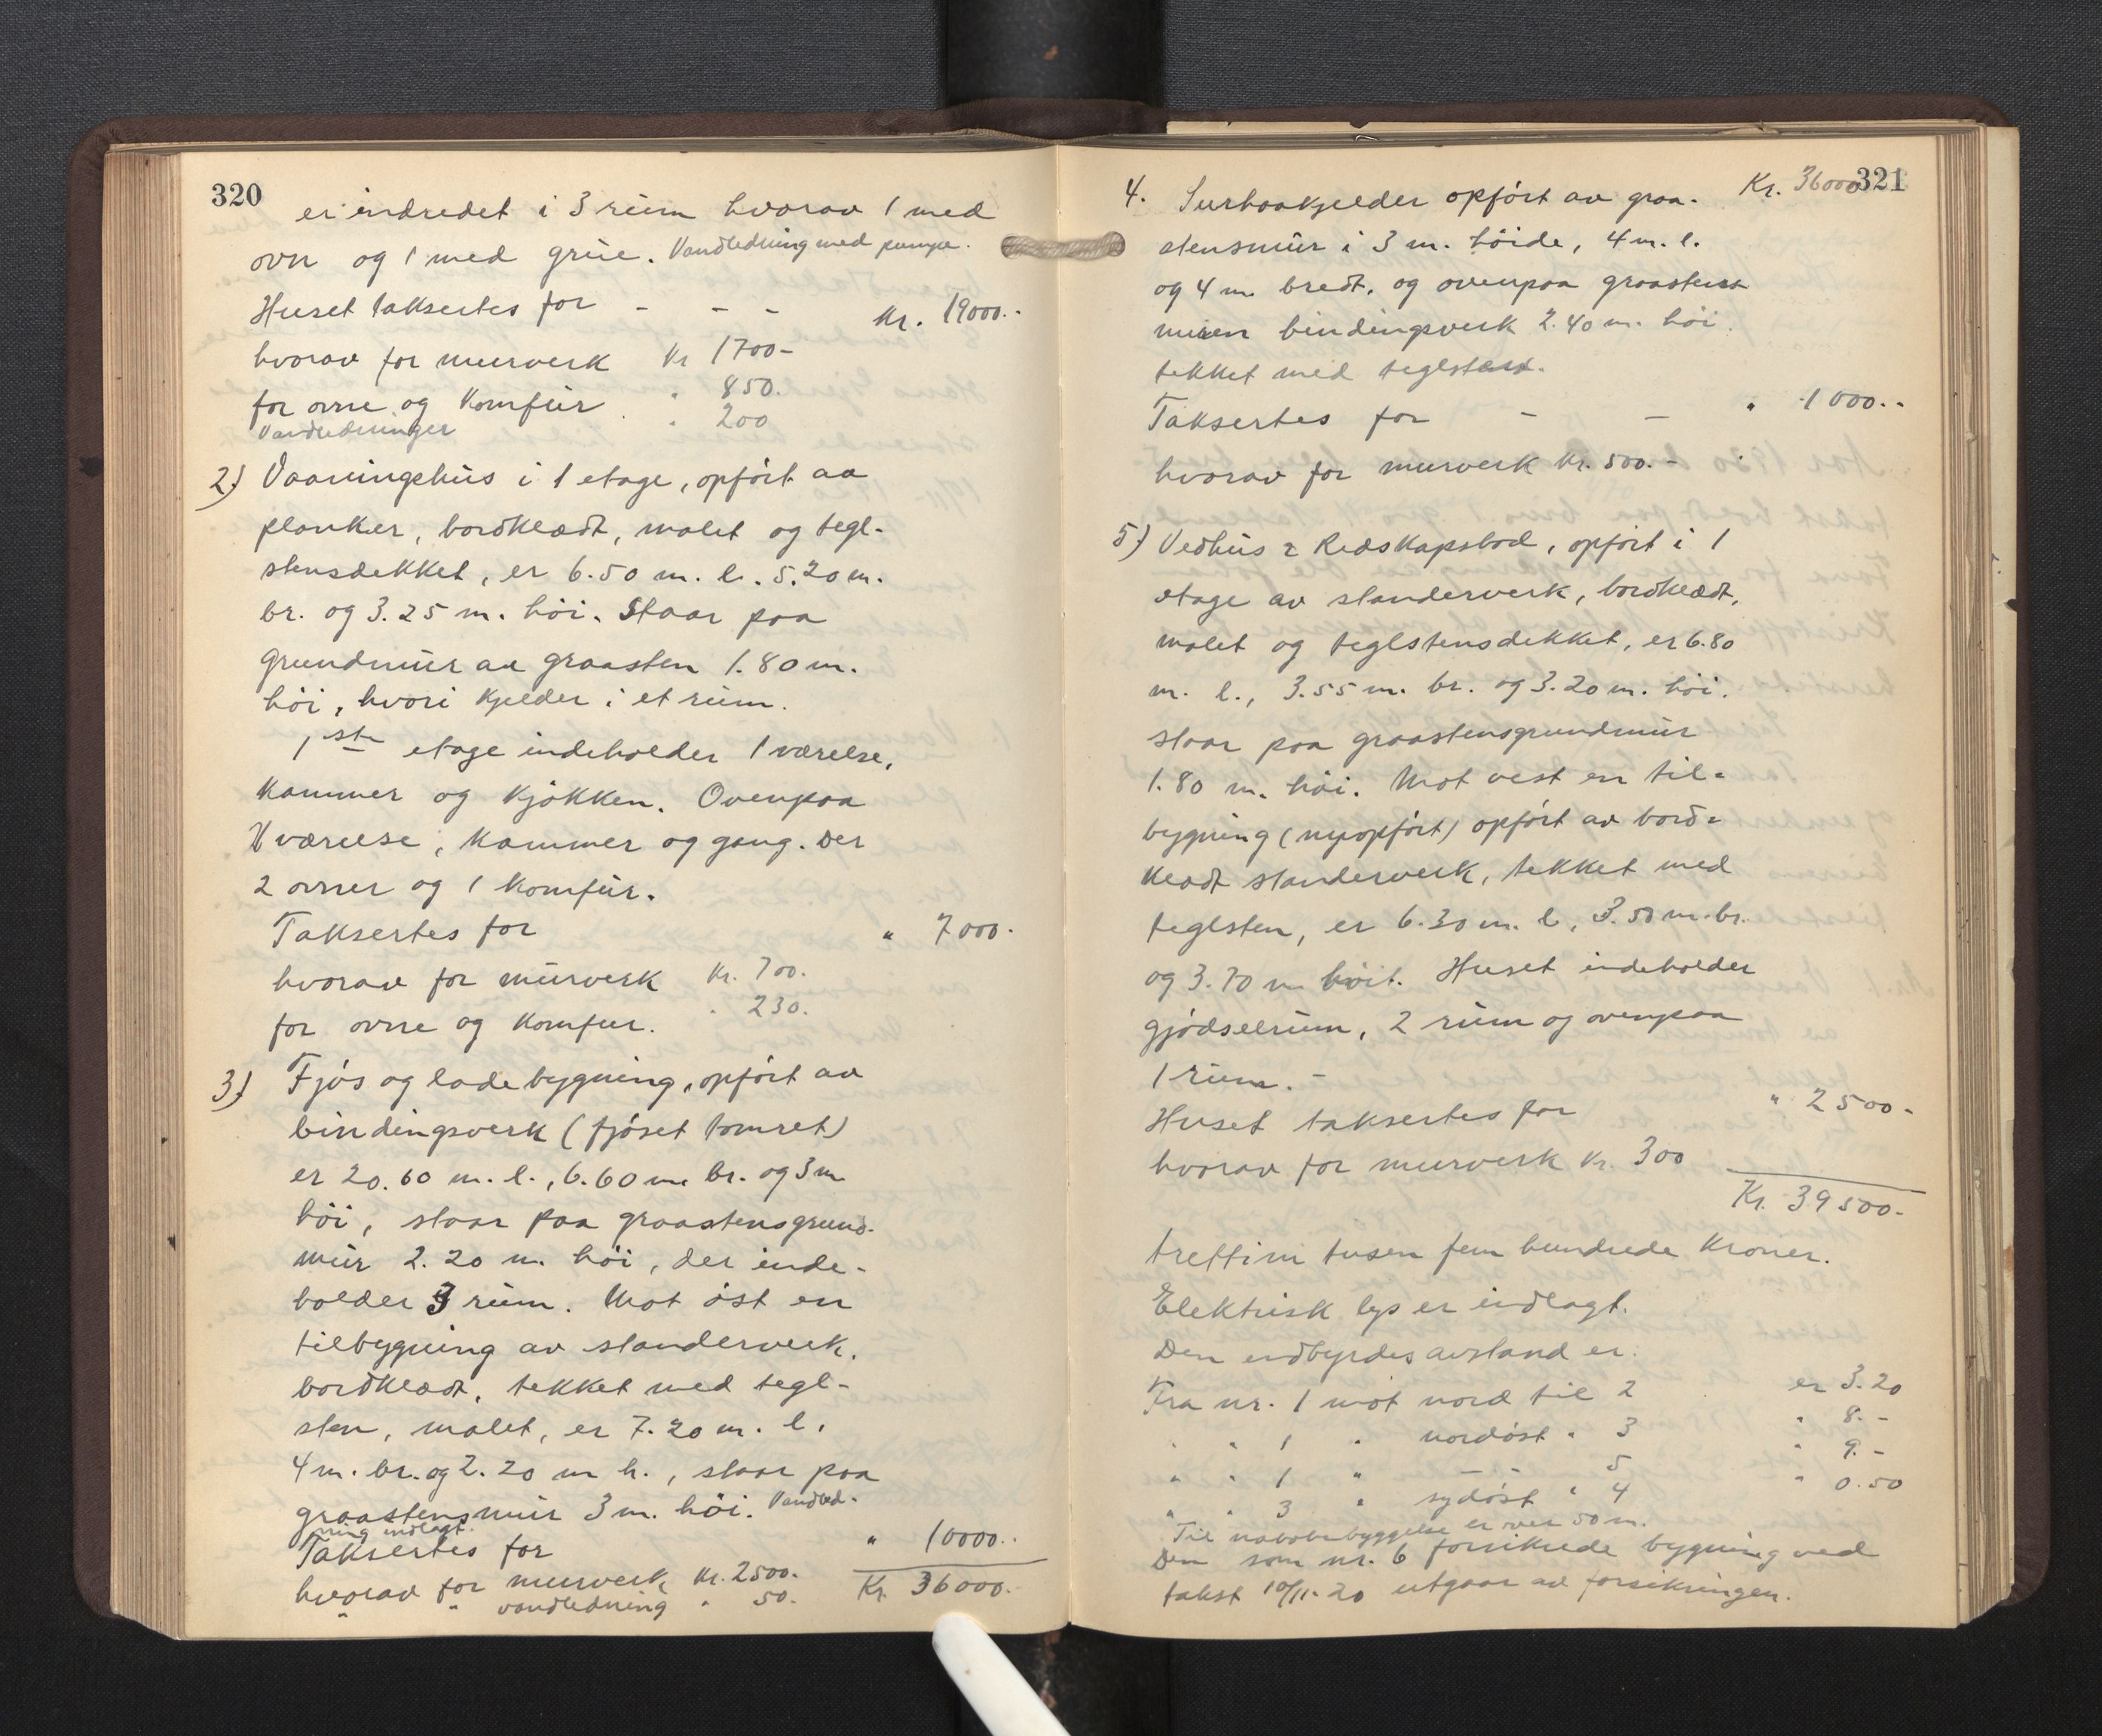 320
er indredet i 3 rum hvorav 1 med
ovn og 1 med grue. Vandledning med pumpe.
Huset taksertes for - - - Kr. 19000.-
hvorav for murverk Kr 1700-
for ovne og Komfur " 850.
Vandledninger " 200
2) Vaaningshus i 1 etage, opført av
planker, bordklædt, malet og tegl-
stensdekket, er 6.50 m. l. 5.20 m.
br. og 3.25 m. høi. Staar paa
grundmur av graasten 1.80 m.
høi, hvori kjelder i et rum.
1ste etage indeholder 1 værelse,
kammer og kjøkken. Ovenpaa
1 værelse, kammer og gang. Der
2 ovner og 1 komfur.
Taksertes for " 7000.
hvorav for murverk Kr. 700.
for ovne og komfur. " 230.
3) Fjøs og ladebygning, opført av
bindingsverk (fjøset tømret)
er 20.60 m. l., 6.60 m br. og 3 m
høi, staar paa graastensgrund-
mur 2.20 m. høi, der inde-
holder 3 rum. Mot øst en
tilbygning av standerverk.
bordklædt, tekket med tegl-
sten, malet, er 7.20 m. l.
4 m. br. og 2.20 m h., staar paa
graastensmur 3 m. høi. Vandled-
ning indlagt.
Taksertes for " 10000.-
hvorav for murverk Kr. 2500.
" " vandledning " 50. Kr. 36000.-
321
Kr. 36000
4. Surhaakjelder opført av graa-
stensmur i 3 m. høide, 4 m. l.
og 4 m bredt, og ovenpaa graastens
muren bindingsverk 2.40 m. høi
tekket med teglsten.
Taksertes for - - " 1000.-
hvorav for murverk Kr. 500.-
5) Vedhus & Redskapsbod, opført i 1
etage av standerverk, bordklædt,
malet og teglstensdekket, er 6.80
m. l., 3.55 m. br. og 3.20 m. høi.
staar paa graastensgrundmur
1.80 m. høi. Mot vest en til-
bygning (nyopført) opført av bord-
klædt standerverk, tekket med
teglsten, er 6.30 m. l, 3.50 m. br.
og 3.70 m høit. Huset indeholder
gjødselrum, 2 rum og ovenpaa
1 rum. -
Huset taksertes for " 2500-
hvorav for murverk Kr. 300
Kr. 39500-
trettini tusen fem hundrede Kroner.
Elektrisk lys er indlagt.
Den indbyrdes avstand er:
Fra nr. 1 mot nord til 2 er 3.20
" " 1 " nordøst " 3 " 8.-
" " 1 " - - 5 " 9.-
" " 3 " sydøst " 4 " 0.50
Til nabobebyggelse er over 50 m.
Den som nr. 6 forsikrede bygning ved
takst 10/11-20 utgaar av forsikringen.